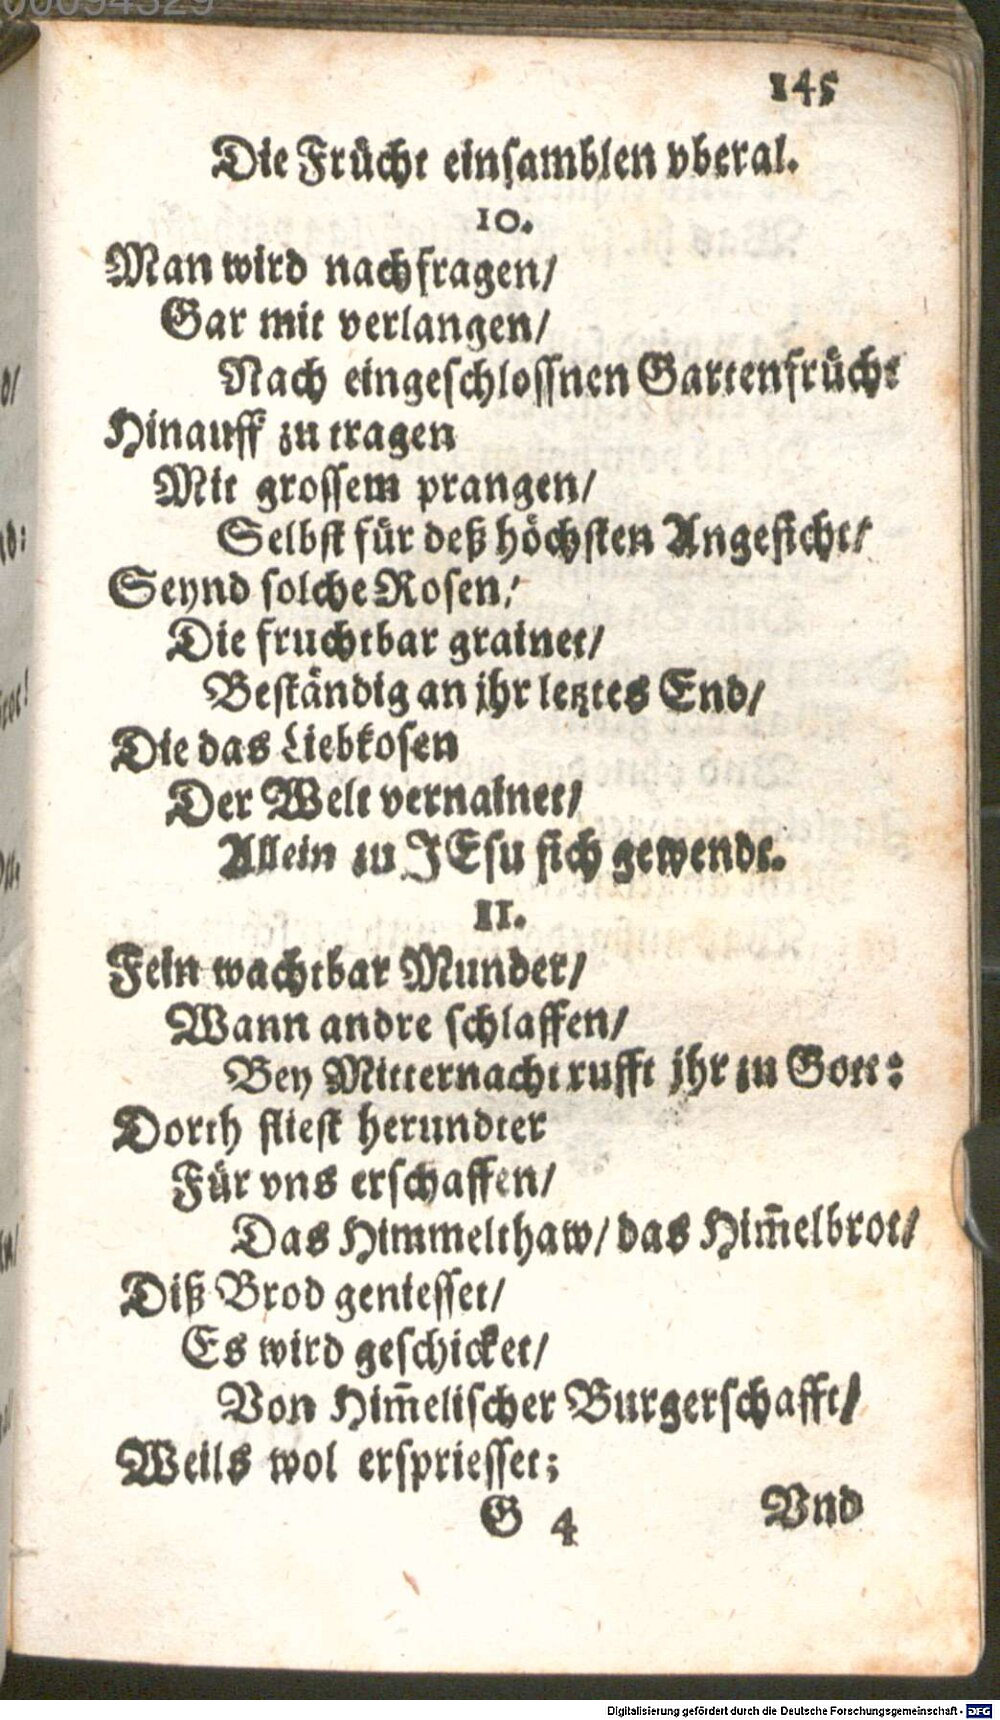 00094329
145
Die Frücht einsamblen vberal.
10.
Man wird nachfragen/
Gar mit verlangen/
Nach eingeschlossnen Gartenfrücht
Hinauff zu tragen
Mit grossem prangen/
Selbst für deß höchsten Angesicht/
Seynd solche Rosen/
Die fruchtbar grainet/
Beständig an jhr letztes End/
Die das Liebkosen
Der Welt vernainet/
Allein zu JEsu sich gewendt.
11.
Fein wachtbar Munder/
Wann andre schlaffen/
Bey Mitternacht rufft jhr zu Gott:
Dorth fliest herundter
Für vns erschaffen/
Das Himmelthaw/ das Him̄elbrot/
Diß Brod geniesset/
Es wird geschicket/
Von Him̄elischer Burgerschafft/
Weils wol erspriesset;
G 4 Vnd
Digitalisierung gefördert durch die Deutsche Forschungsgemeinschaft - DFG